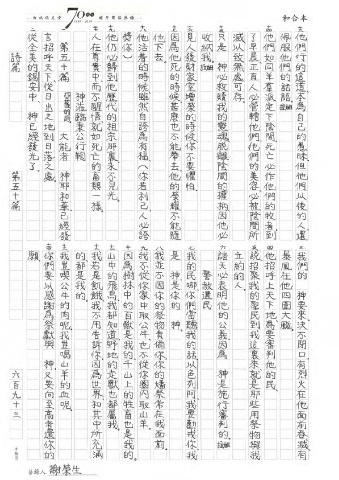 和合本
70
十三 他們行的這道本為自己的愚昧但他們以後的人還
佩服他們的話語。細拉
十四 他們如同羊群派定下陰間死亡必作他們的牧者到
了早晨正直人必管轄他們他們的美容必被陰間所
滅以致無處可存。
十五 只是 神必救贖我的靈魂脫離陰間的權柄因他必
收納我。細拉
十六 見人發財家室增榮的時候你不要懼怕。
十七 因為他死的時候甚麼也不能帶去他的榮耀不能隨
他下去。
十八 他活著的時候雖然自誇為有福（你若利己人必誇
獎你）
十九 他仍必歸到他歷代的祖宗那裏永不見光。
二十 人在尊貴中而不醒悟就如死亡的畜類一樣。
第五十篇
神蒞臨秉公行鞫
亞薩的詩。
一 大能者 神耶和華已經發
言招呼天下從日出之地到日落之處。
二 從全美的錫安中 神已經發光了。
三 我們的 神要來決不閉口有烈火在他面前吞滅有
暴風在他四圍大颳。
四 他招呼上天下地為要審判他的民
五 說招聚我的聖民到我這裏來就是那些用祭物與我
立約的人。
六 諸天必表明他的公義因為 神是施行審判的。細拉
警教選民
七 我的民哪你們當聽我的話以色列阿我要勸戒你我
是 神是你的 神。
八 我並不因你的祭物責備你你的燔祭常在我面前。
九 我不從你家中取公牛也不從你圈內取山羊。
十 因為樹林中的百獸是我的千山上的牲畜也是我的。
十一 山中的飛鳥我都知道野地的走獸也都屬我。
十二 我若是飢餓我不用告訴你因為世界和其中所充滿
的都是我的。
十三 我豈吃公牛的肉呢我豈喝山羊的血呢。
十四 你們要以感謝為祭獻與 神又要向至高者還你的
願
詩篇 第五十篇 六百九十三
抄錄人 謝榮生